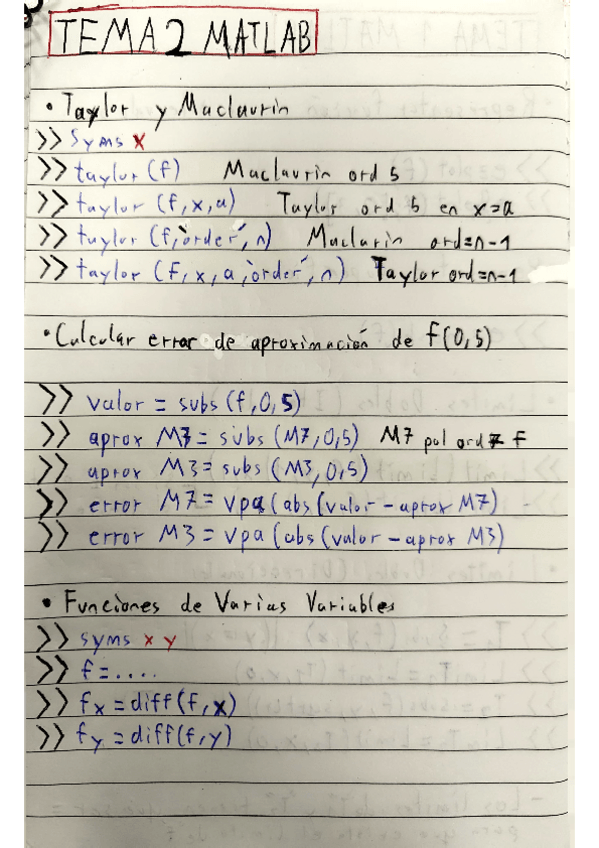 TEMA 2 MATLAB
• Taylor y Maclaurin
>> Syms x
>> taylor (f) Maclaurin ord 5
>> taylor (f, x, a) Taylor ord 5 en x=a
>> taylor (f, 'order', n) Maclarin ord=n-1
>> taylor (f, x, a, 'order', n) Taylor ord=n-1
• Calcular error de aproximación de f(0,5)
>> valor = subs (f, 0,5)
>> aprox M7 = subs (M7, 0,5) M7 pol ord 7 f
>> aprox M3 = subs (M3, 0,5)
>> error M7 = vpa (abs (valor - aprox M7)
>> error M3 = vpa (abs (valor - aprox M3)
• Funciones de Varias Variables
>> syms x y
>> f = ....
>> fx = diff (f, x)
>> fy = diff (f, y)